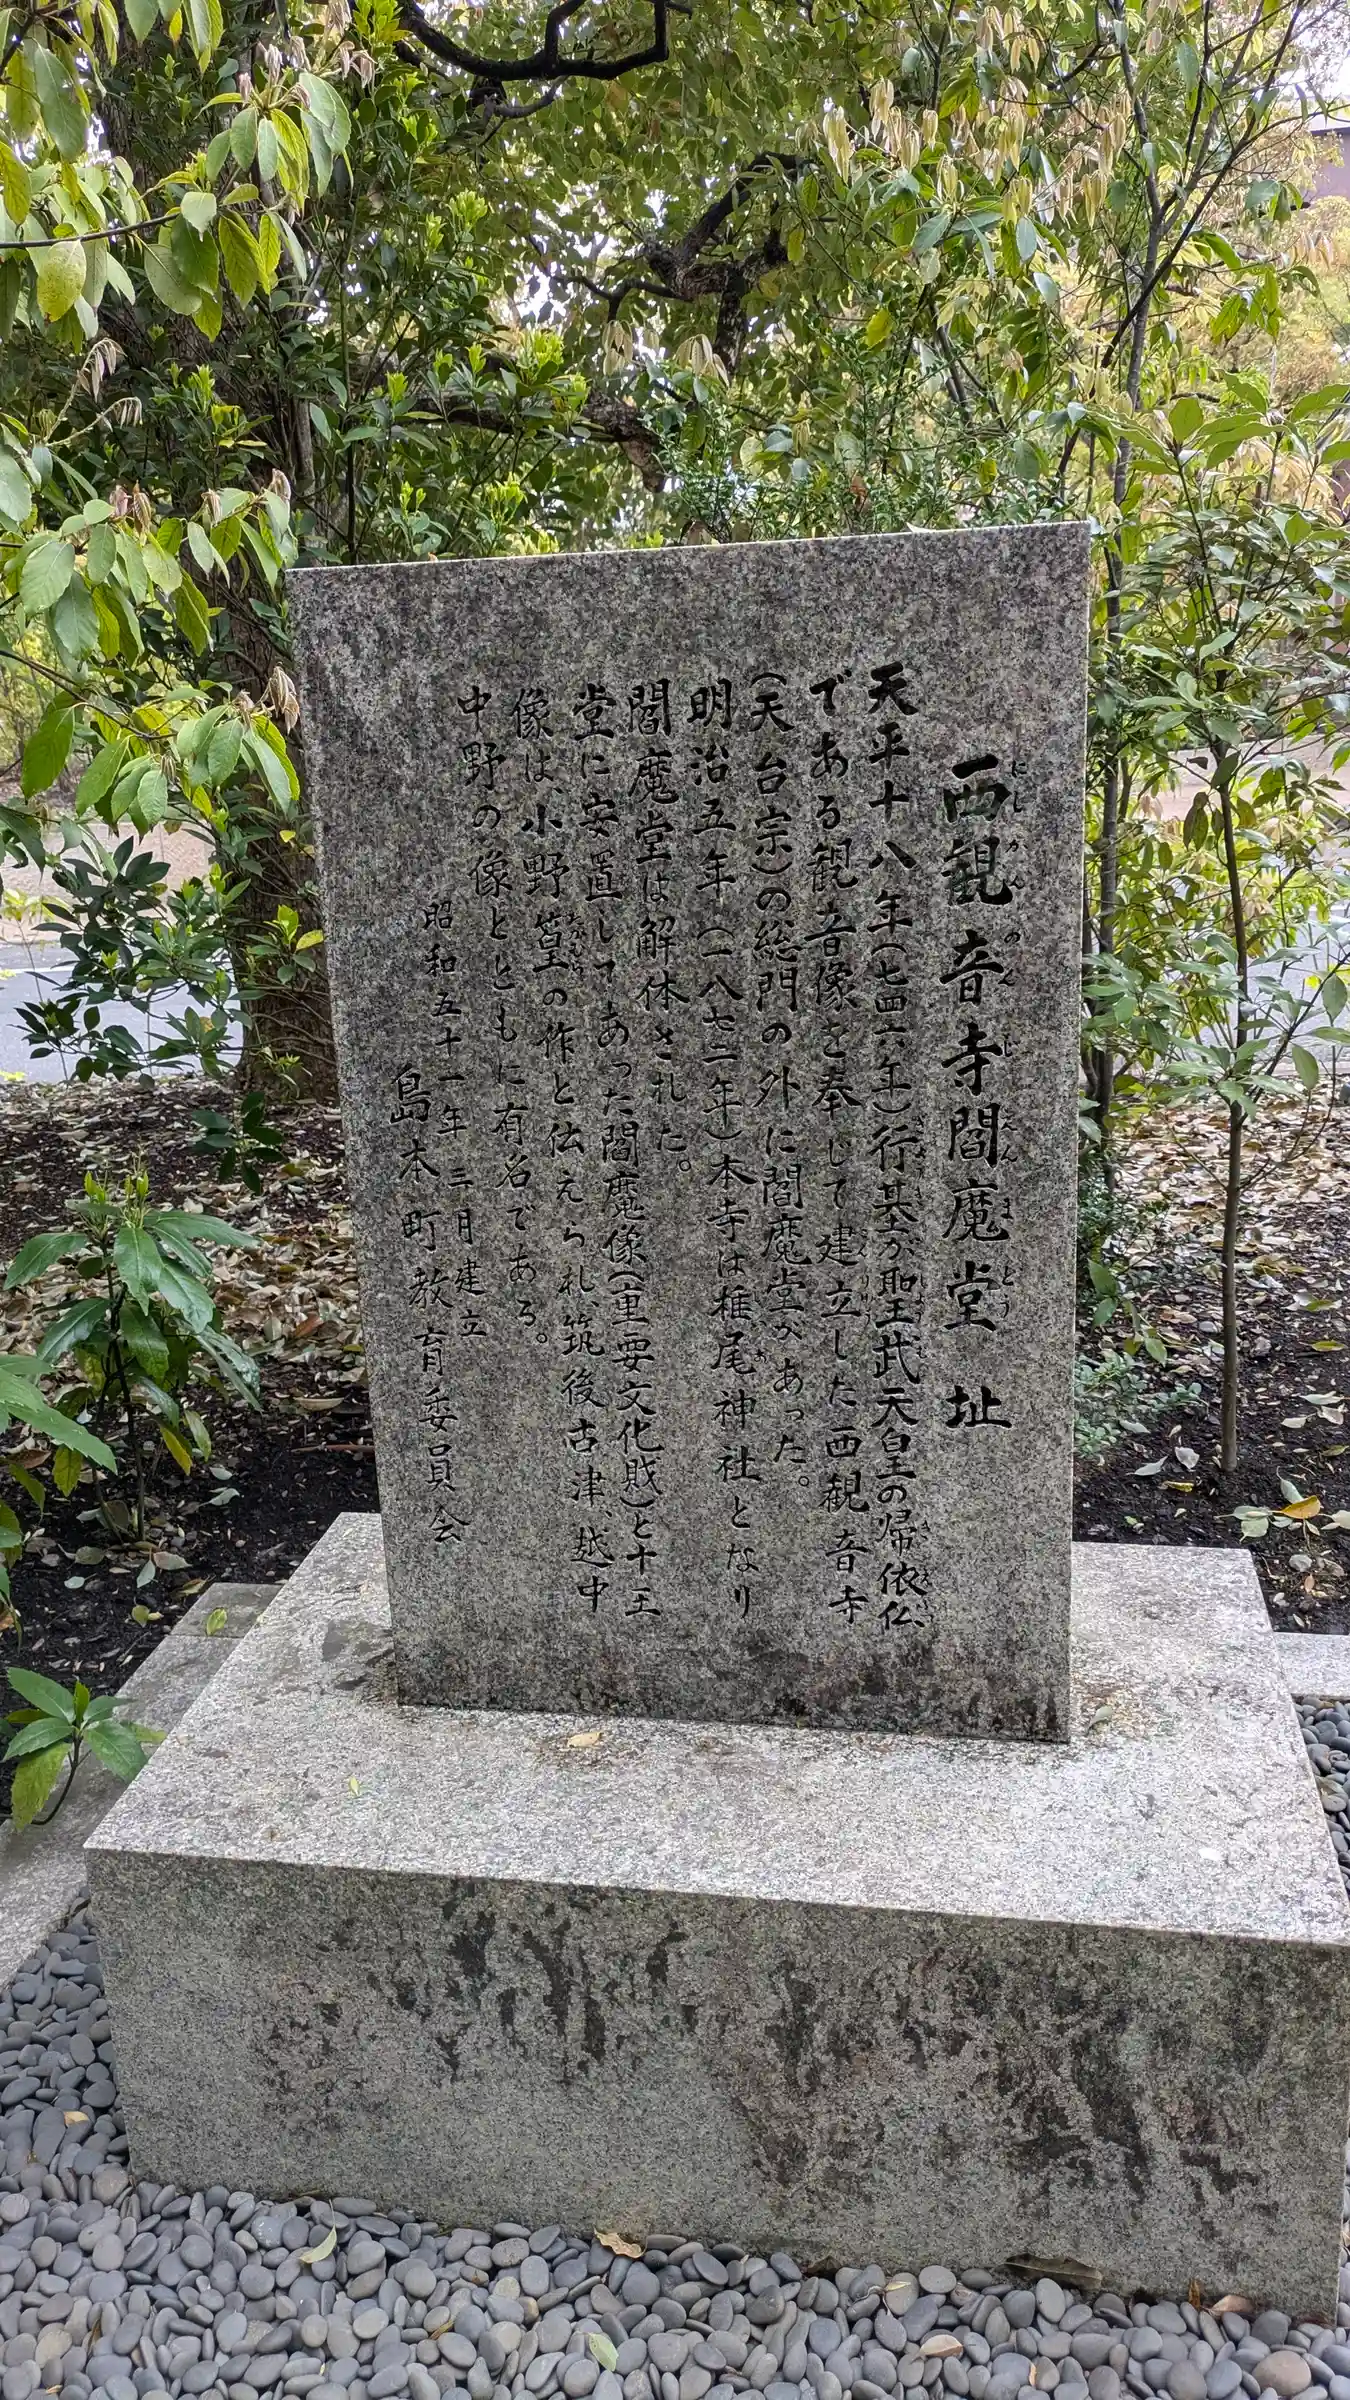 西観音寺閻魔堂址
天平十八年(七四六年)行基が聖武天皇の帰依仏
である観音像を奉じて建立した西観音寺
(天台宗)の総門の外に閻魔堂があった。
明治五年(一八七二年)本寺は椎尾神社となり
閻魔堂は解体された。
堂に安置してあった閻魔像(重要文化財)と十王
像は、小野篁の作と伝えられ、筑後古津、越中
中野の像とともに有名である。
昭和五十一年三月建立
島本町教育委員会